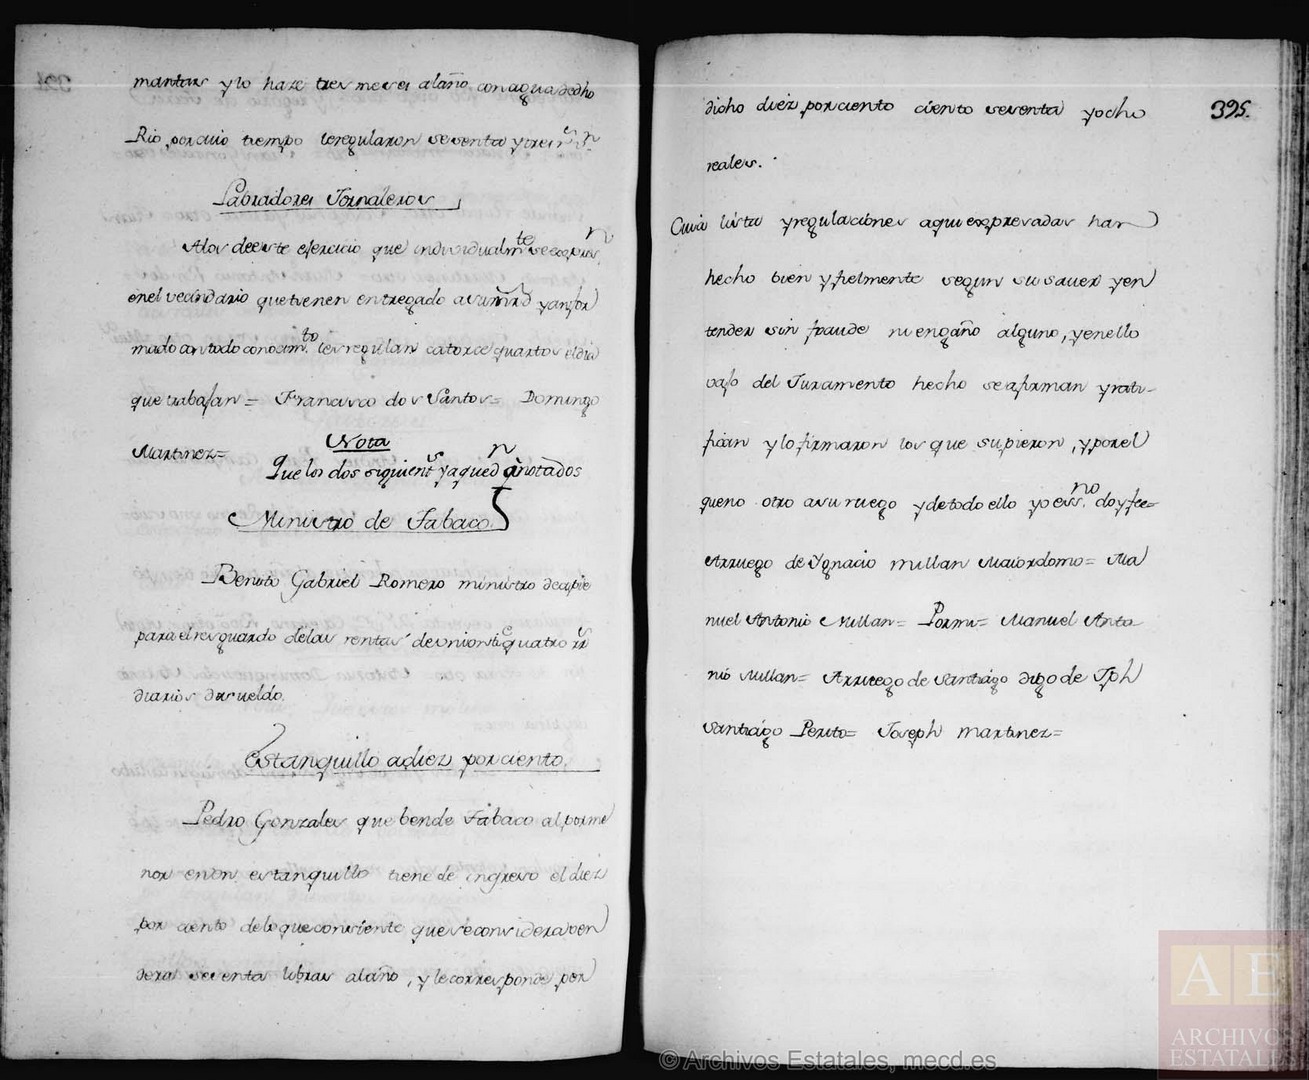 mantas y lo haze tres meses al año con agua de dho
Rio, por cuio tiempo le regularon sesenta y tres rs. vn.
Labradores Jornaleros
A los de este ejercicio que individualmte se expresn
en el vecindario que tienen entregado a su mrd y anfor
mado con todo conocimto les regulan catorce quartos el dia
que trabajan = Francisco dos Santos = Domingo
Martinez =
Nota
Que los dos siguients ya quedn anotados
Ministro de Tabaco
Benito Gabriel Romero ministro de apie
para el resguardo de las rentas de quatro rrs
diarios de sueldo.
Estanquillo a diez por ciento
Pedro Gonzales que bende Tabaco al porme
nor en en estanquillo tiene de ingreso el diez
por ciento de lo que consiente que se considera ven
dera sesenta libras al año, y le corresponde por
395.
dicho diez por ciento ciento sesenta y ocho
reales.
Cuia lista y regulaciones aqui expresadas han
hecho bien y fielmente segun su saver y en
tender sin fraude ni engaño alguno, y en ello
vajo del Juramento hecho se afirman y rati-
fican y lo firmaron los que supieron, y por el
que no otro a su ruego y de todo ello yo essno. doy fee=
A rruego de Ygnacio Millan Maiordomo = Ma
nuel Antonio Millan = Por mi = Manuel Anto
nio Millan = A rruego de Santiago digo de Jph
Santiago Perito = Joseph Martinez =
© Archivos Estatales, mecd.es
AE
ARCHIVOS
ESTATALES